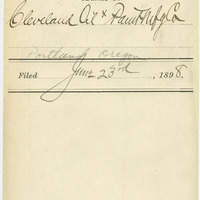 Cleveland Oil & Paint Mfg Co
Portland, Oregon
Filed June 23rd, 1898.